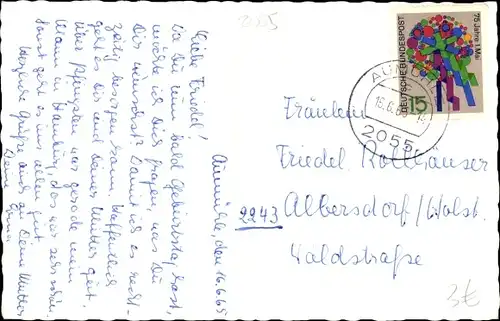 2055
Aumühle, den 16.6.65
Liebe Friedel!
Da Du nun bald Geburtstag hast,
möchte ich Dich fragen, was Du
Dir wünschst? Damit ich es recht-
zeitig besorgen kann. Hoffentlich
geht es Dir und Deiner Mutter gut.
Über Pfingsten war gerade mein
Mann in Hamburg, das war sehr schön.
Sonst geht es uns allen gut.
Herzliche Grüße auch an Deine Mutter
Deine
75 Jahre 1.Mai
DEUTSCHE BUNDESPOST
15
2055
Fräulein
Friedel Rollhäuser
2243 Albersdorf/Holst.
Waldstraße
3€